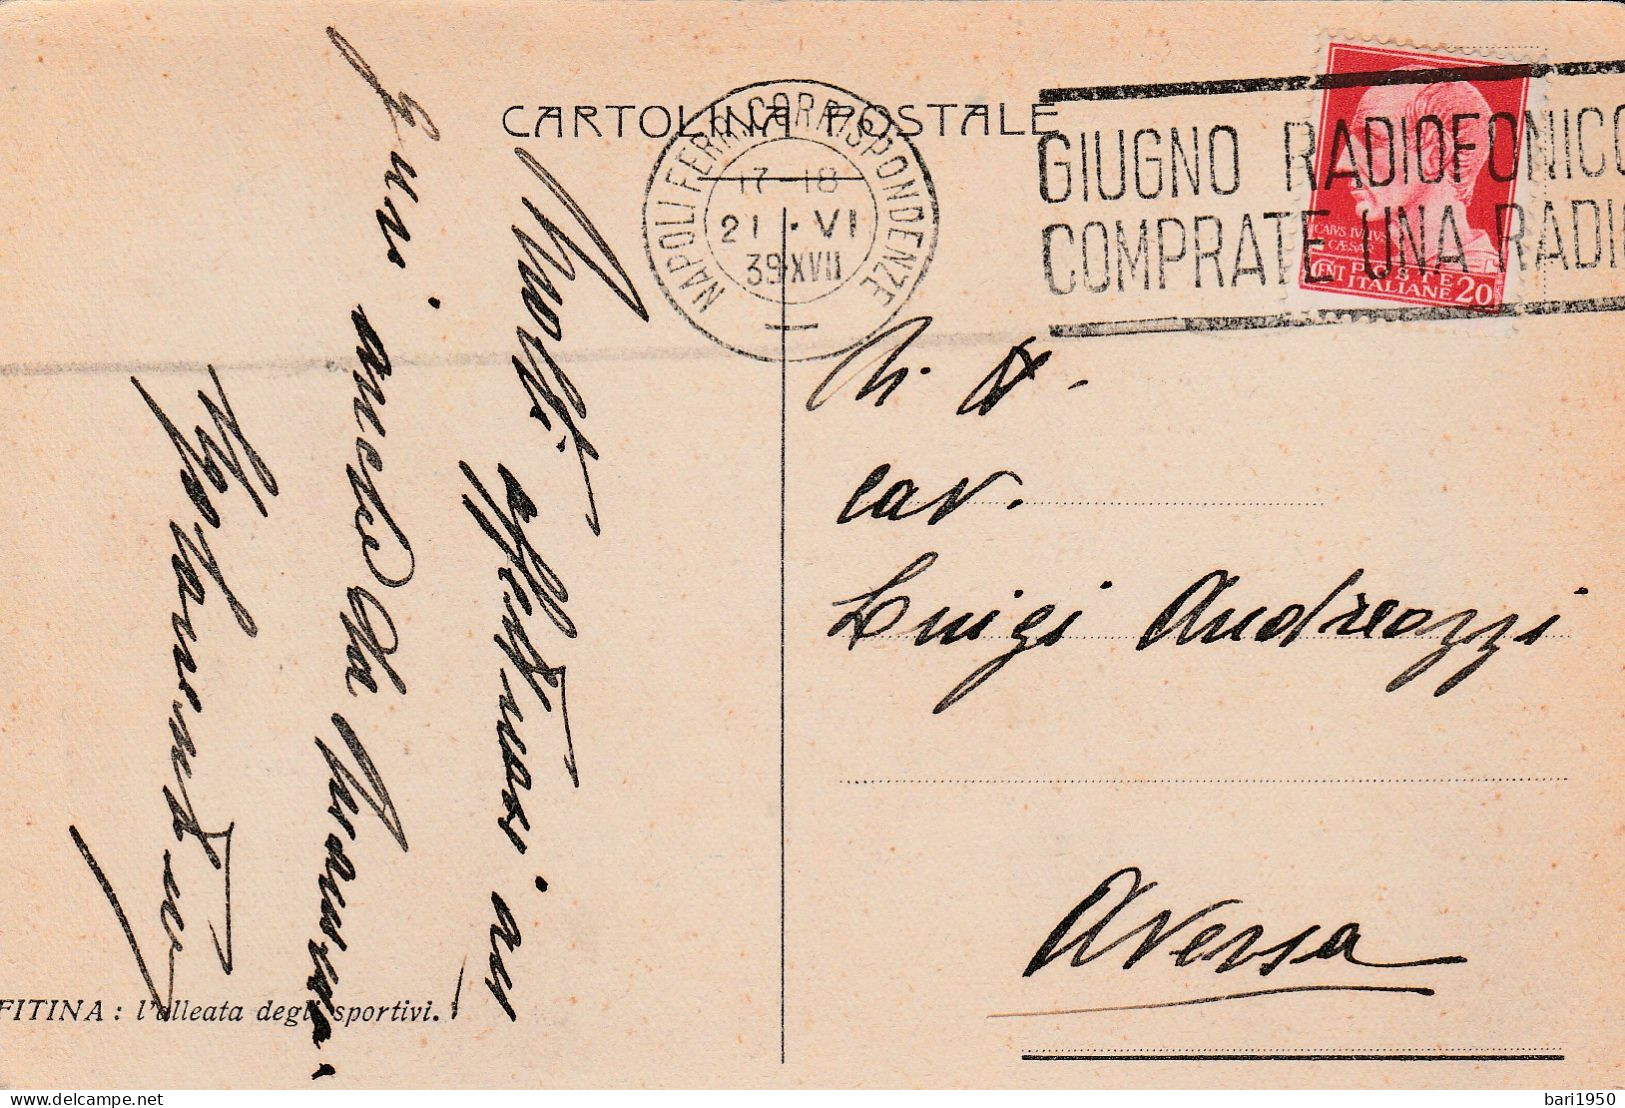 CARTOLINA POSTALE
NAPOLI FERR. CORRISPONDENZE
17-18
21 . VI
39 XVII
GIUGNO RADIOFONICO
COMPRATE UNA RADIO
CAIVS IVLIVS
CÆSAR
CENT POSTE
ITALIANE 20
Molti affettuosi au
guri anche da mamma.
cav.
Luigi Andreozzi
Aversa
FITINA : l'alleata degli sportivi.
delcampe.net
bari1950